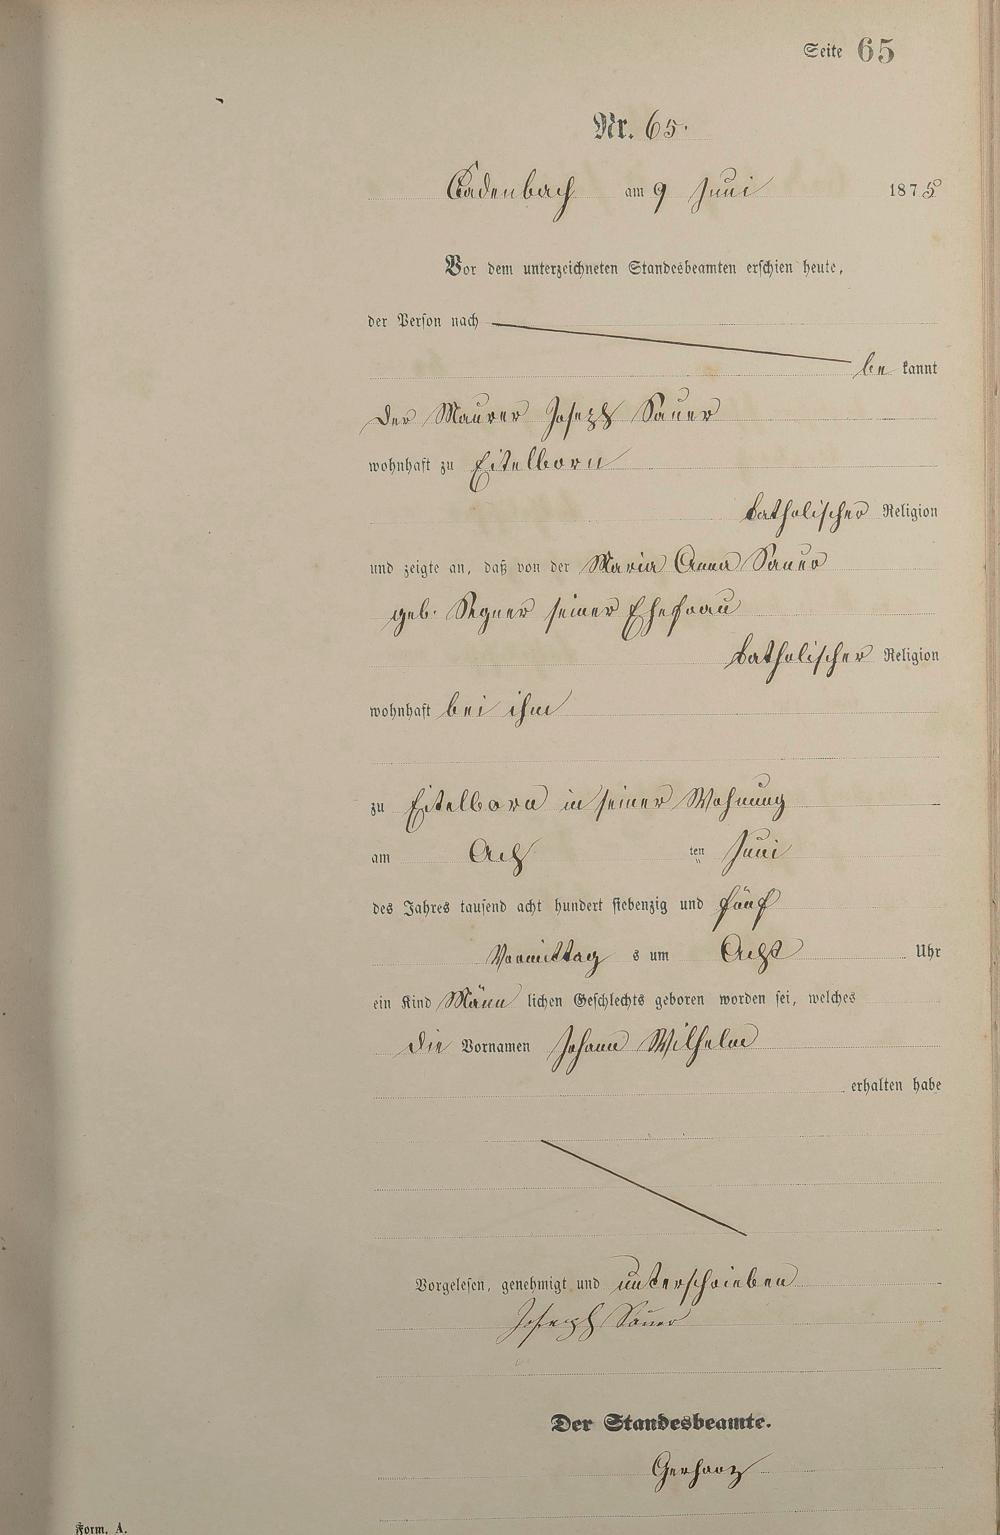 Seite 65
Nr. 65.
Cadenbach am 9 Juni 1875
Vor dem unterzeichneten Standesbeamten erschien heute,
der Person nach
be kannt
der Maurer Joseph Sauer
wohnhaft zu Eitelborn
katholischer Religion
und zeigte an, daß von der Maria Anna Sauer
geb. Segner seiner Ehefrau
katholischer Religion
wohnhaft bei ihm
zu Eitelborn in seiner Wohnung
am Ach ten Juni
des Jahres tausend acht hundert siebenzig und fünf
Vormittag s um Acht Uhr
ein Kind Männ lichen Geschlechts geboren worden sei, welches
die Vornamen Johann Wilhelm
erhalten habe
Vorgelesen, genehmigt und unterschrieben
Joseph Sauer
Der Standesbeamte.
Gerharz
Form. A.